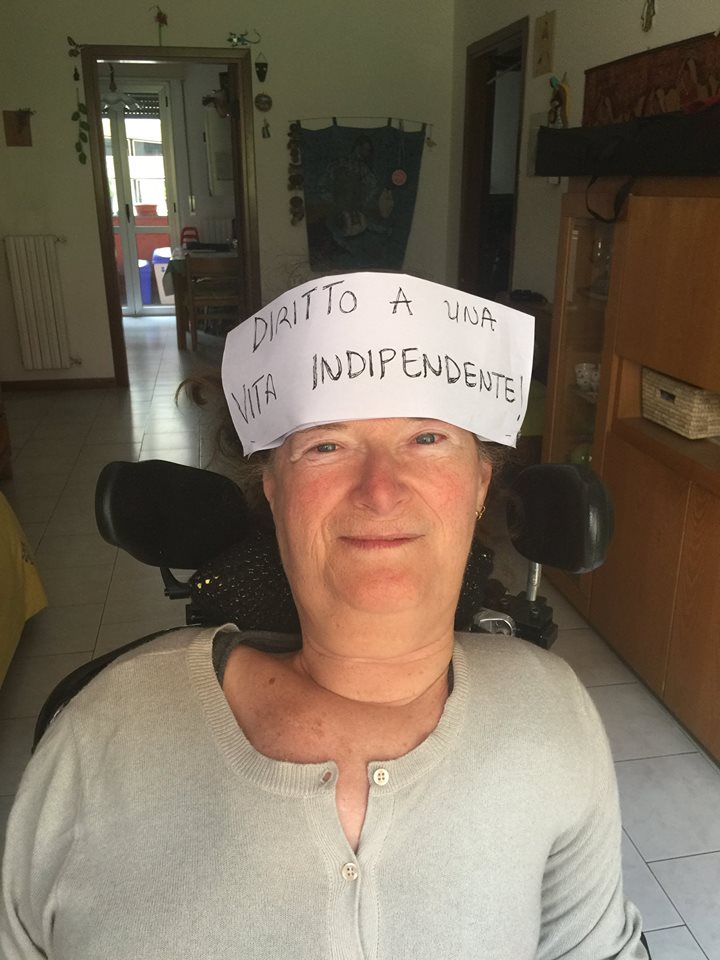 DIRITTO A UNA
VITA INDIPENDENTE!